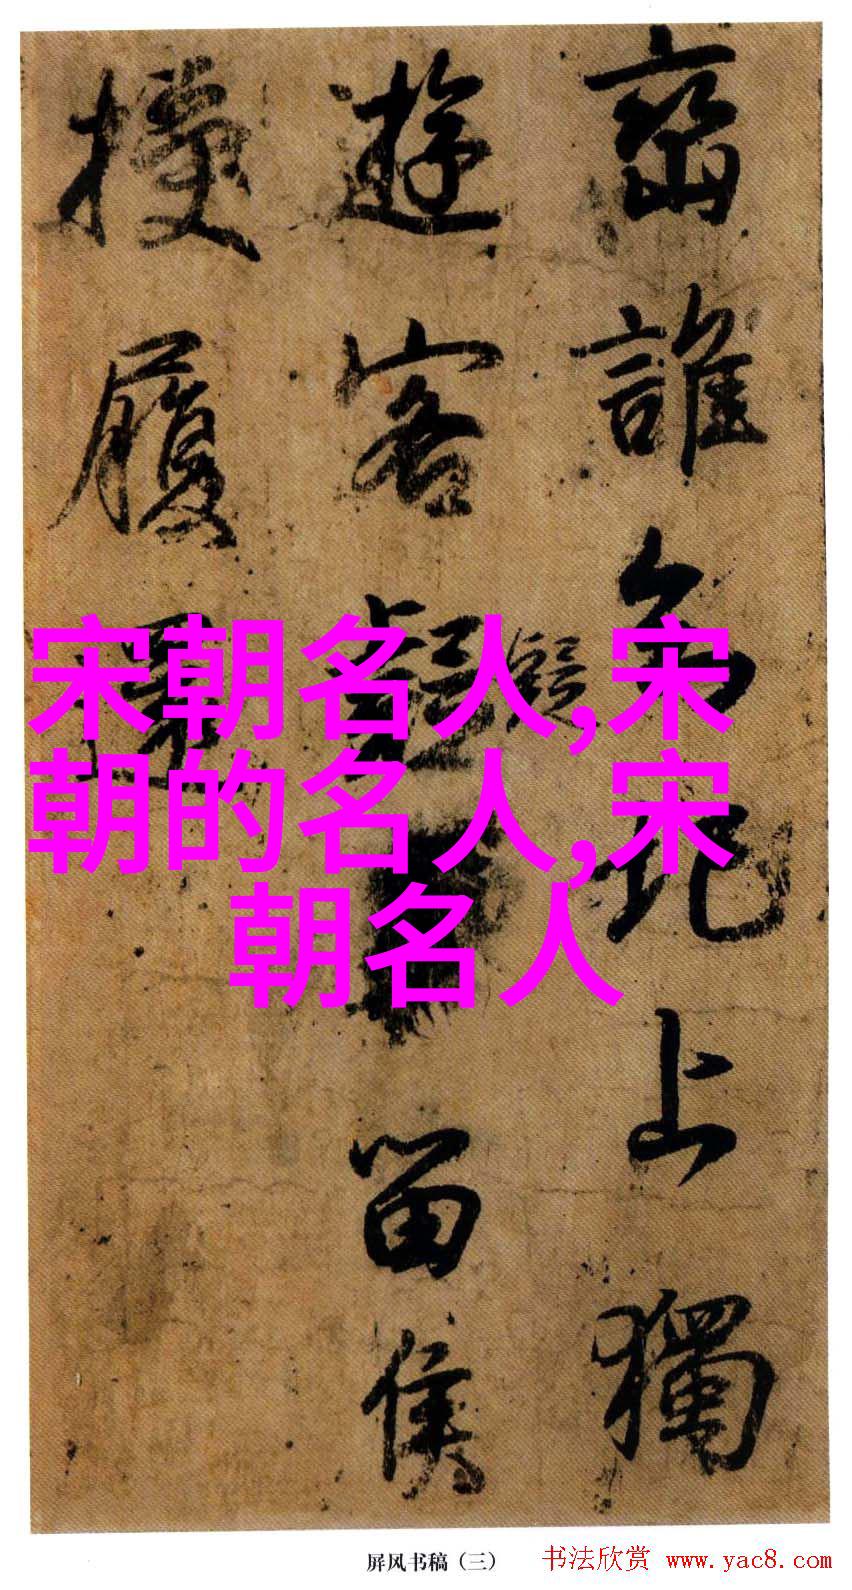 峦誰圯上獨
遊客疑留侯
履還
宋朝名人,宋
朝的名人,宋
朝名人
屏风书稿（三）
书法欣赏 www.yac8.com